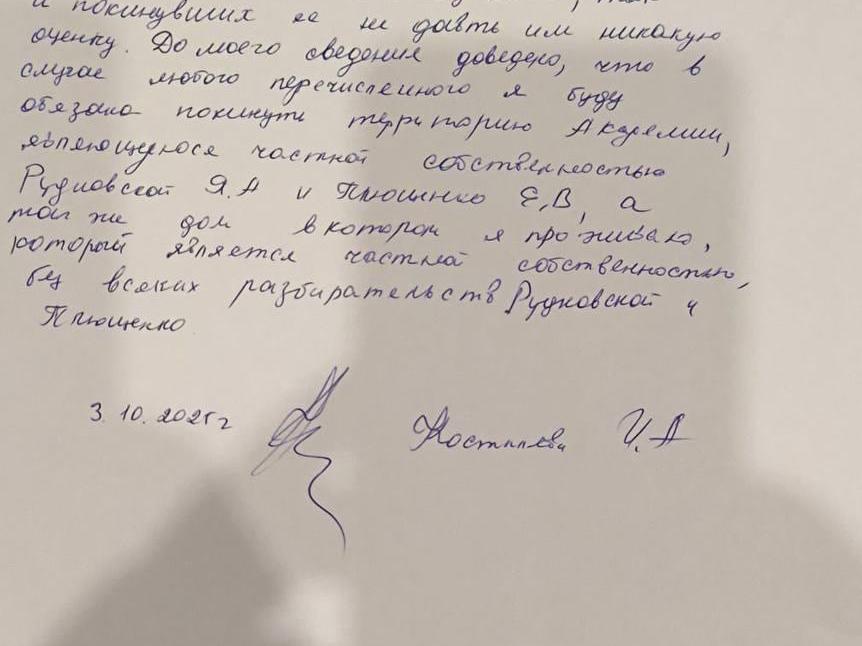 и покинувших ее не давть им никакую
оценку. До моего сведения доведено, что в
случае любого перечисленного я буду
обязана покинуть территорию Академии,
являющуюся частной собственностью
Рудковской Я.А и Плющенко Е,В, а
так же дом в котором я проживаю,
который является частной собственностью,
без всяких разбирательств Рудковской и
Плющенко
3.10.2025г Костылева И.А